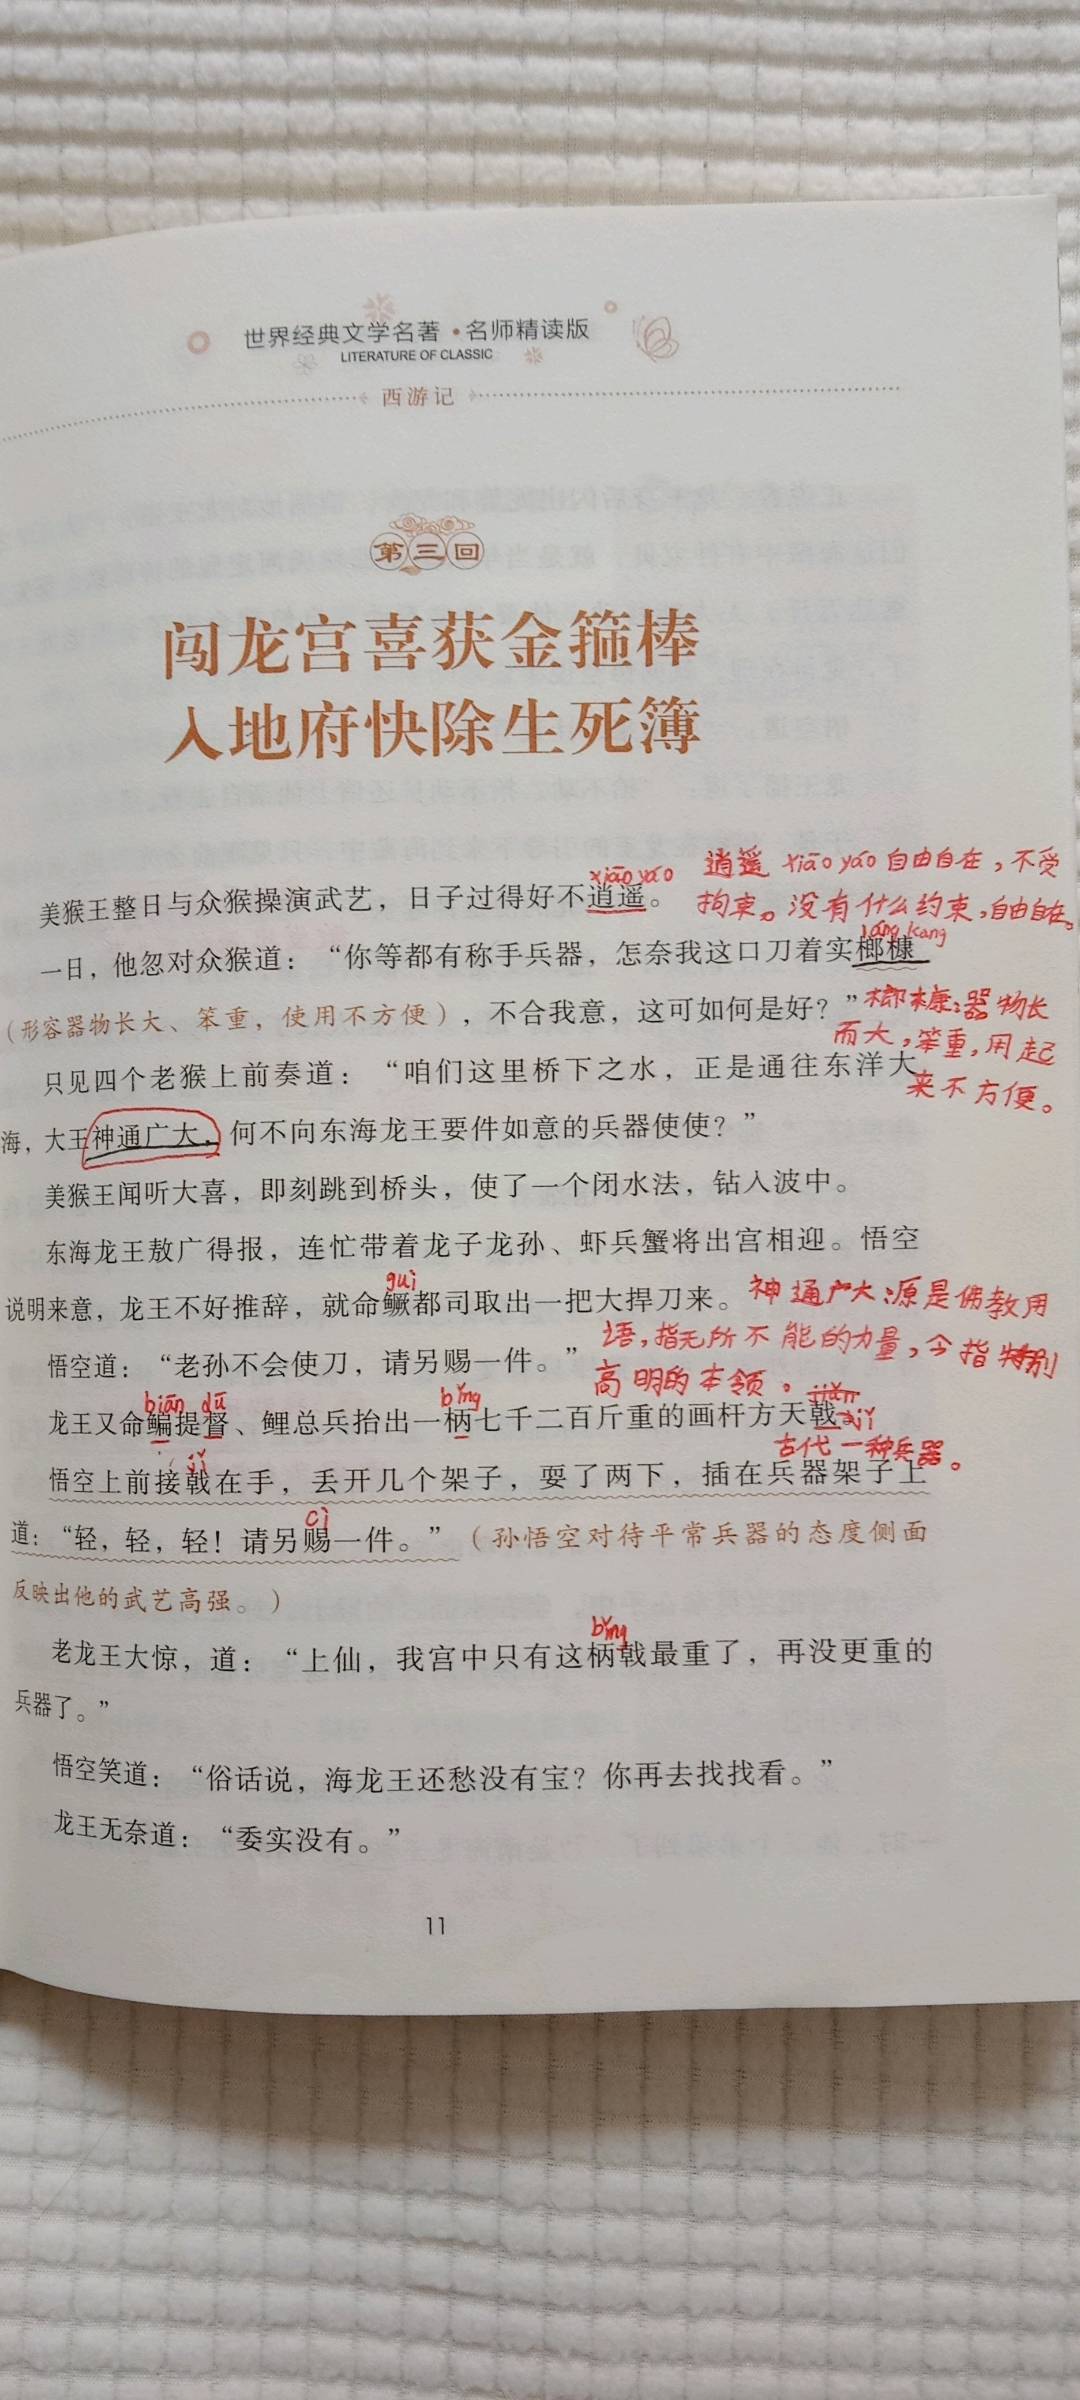 世界经典文学名著·名师精读版
LITERATURE OF CLASSIC
西游记
第三回
闯龙宫喜获金箍棒
入地府快除生死簿
xiāo yáo
逍遥 xiāo yáo 自由自在，不受
美猴王整日与众猴操演武艺，日子过得好不逍遥。
拘束。没有什么约束，自由自在。
láng kang
一日，他忽对众猴道：“你等都有称手兵器，怎奈我这口刀着实榔槺
（形容器物长大、笨重，使用不方便），不合我意，这可如何是好？”
榔槺：器物长
而大，笨重，用起
来不方便。
只见四个老猴上前奏道：“咱们这里桥下之水，正是通往东洋大
海，大王神通广大，何不向东海龙王要件如意的兵器使使？”
美猴王闻听大喜，即刻跳到桥头，使了一个闭水法，钻入波中。
东海龙王敖广得报，连忙带着龙子龙孙、虾兵蟹将出宫相迎。悟空
guì
说明来意，龙王不好推辞，就命鳜都司取出一把大捍刀来。
神通广大：源是佛教用
语，指无所不能的力量，今指特别
高明的本领。
悟空道：“老孙不会使刀，请另赐一件。”
biān dū bǐng
龙王又命鳊提督、鲤总兵抬出一柄七千二百斤重的画杆方天戟。
jǐ
古代一种兵器。
jǐ
悟空上前接戟在手，丢开几个架子，耍了两下，插在兵器架子上
cì
道：“轻，轻，轻！请另赐一件。”（孙悟空对待平常兵器的态度侧面
反映出他的武艺高强。）
bǐng
老龙王大惊，道：“上仙，我宫中只有这柄戟最重了，再没更重的
兵器了。”
悟空笑道：“俗话说，海龙王还愁没有宝？你再去找找看。”
龙王无奈道：“委实没有。”
11